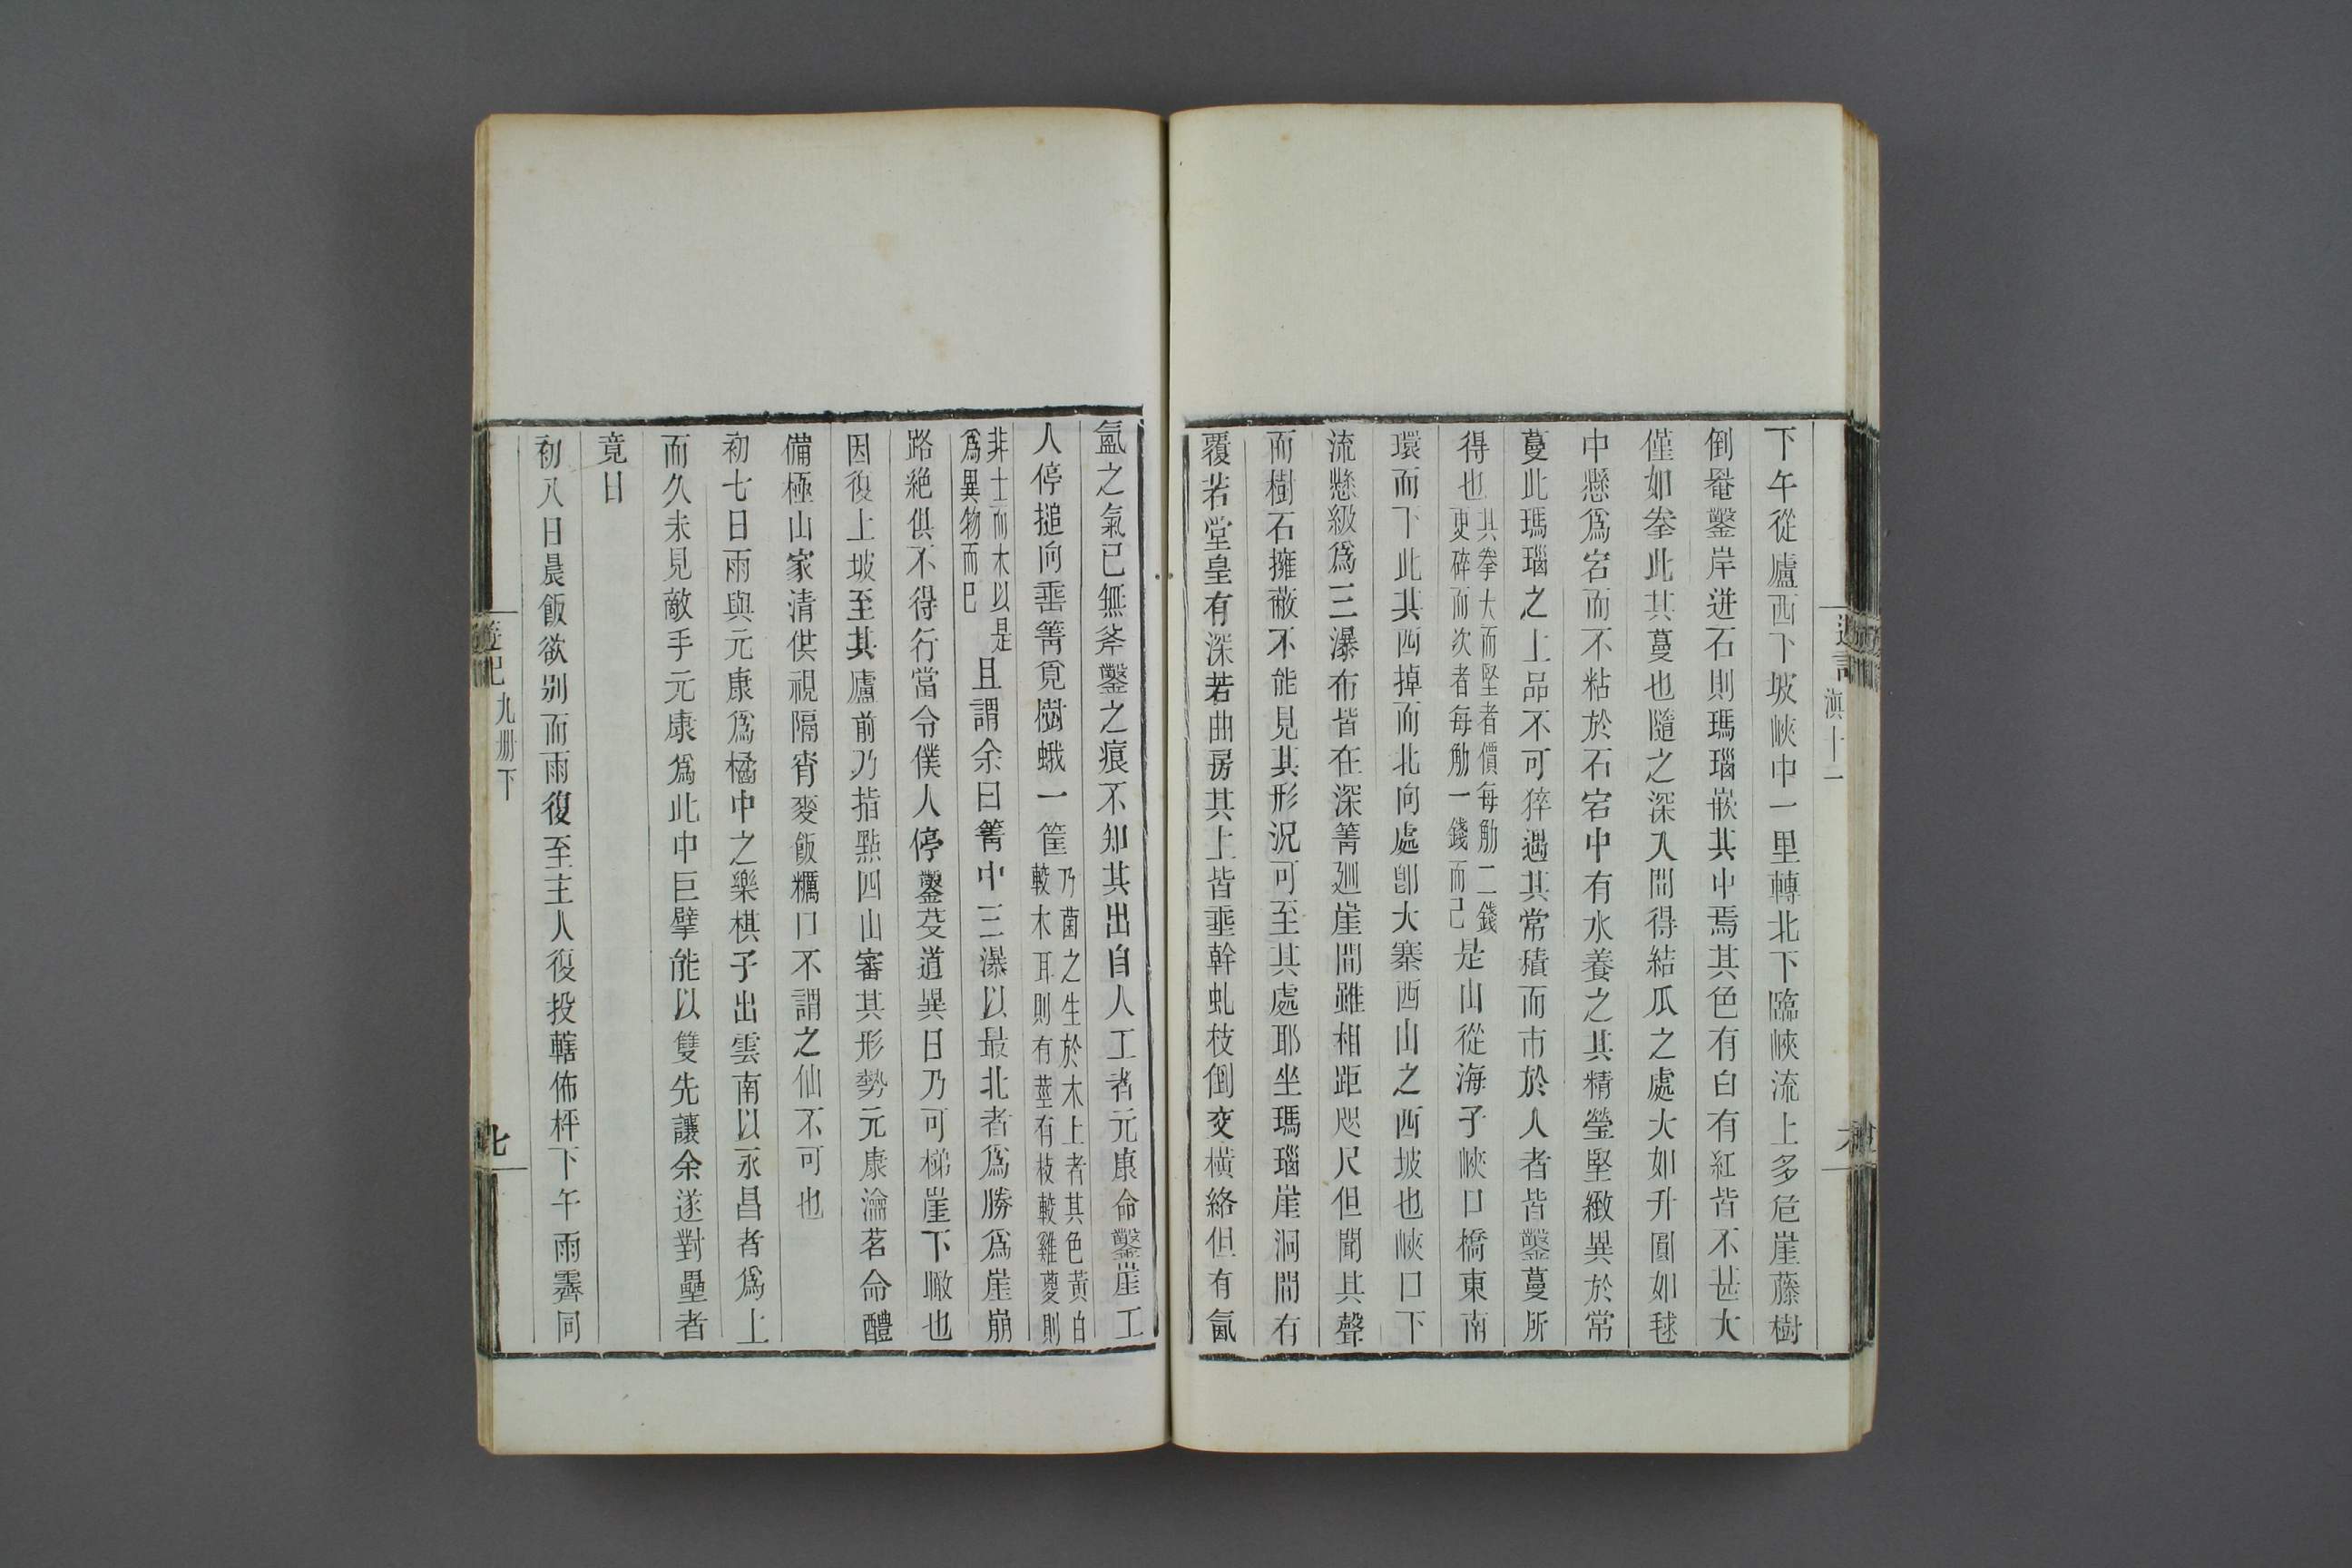 遊記 滇十一
下午從廬西下坡峽中一里轉北下臨峽流上多危崖藤樹
倒罨鑿岸迸石則瑪瑙嵌其中焉其色有白有紅皆不甚大
僅如拳此其蔓也隨之深入間得結瓜之處大如升圓如毬
中懸爲宕而不粘於石宕中有水養之其精瑩堅緻異於常
蔓此瑪瑙之上品不可猝遇其常積而市於人者皆鑿蔓所
得也其拳大而堅者價每觔二錢更碎而次者每觔一錢而已是山從海子峽口橋東南
環而下此其西掉而北向處卽大寨西山之西坡也峽口下
流懸級爲三瀑布皆在深箐廻崖間雖相距咫尺但聞其聲
而樹石擁蔽不能見其形況可至其處耶坐瑪瑙崖洞間有
覆若堂皇有深若曲房其上皆垂幹虬枝倒交橫絡但有氤
氳之氣已無斧鑿之痕不知其出自人工者元康命鑿崖工
人停搥向垂箐覓樹蛾一筐乃菌之生於木上者其色黃白較木耳則有莖有枝較雞葼則
非土而木以是爲異物而已且謂余曰箐中三瀑以最北者爲勝爲崖崩
路絶俱不得行當令僕人停鑿芟道異日乃可梯崖下瞰也
因復上坡至其廬前乃指點四山審其形勢元康瀹茗命醴
備極山家清供視隔宵麥飯糲口不謂之仙不可也
初七日雨與元康爲橘中之樂棋子出雲南以永昌者爲上
而久未見敵手元康爲此中巨擘能以雙先讓余遂對壘者
竟日
初八日晨飯欲別而雨復至主人復投轄佈枰下午雨霽同
遊記 九册下